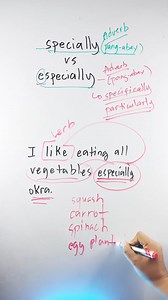 specially
Adverb
(pang-abay)
vs
especially
Adverb
(pang-abay)
specifically
particularly
verb
I like eating all
vegetables especially
okra.
squash
carrot
spinach
egg plant